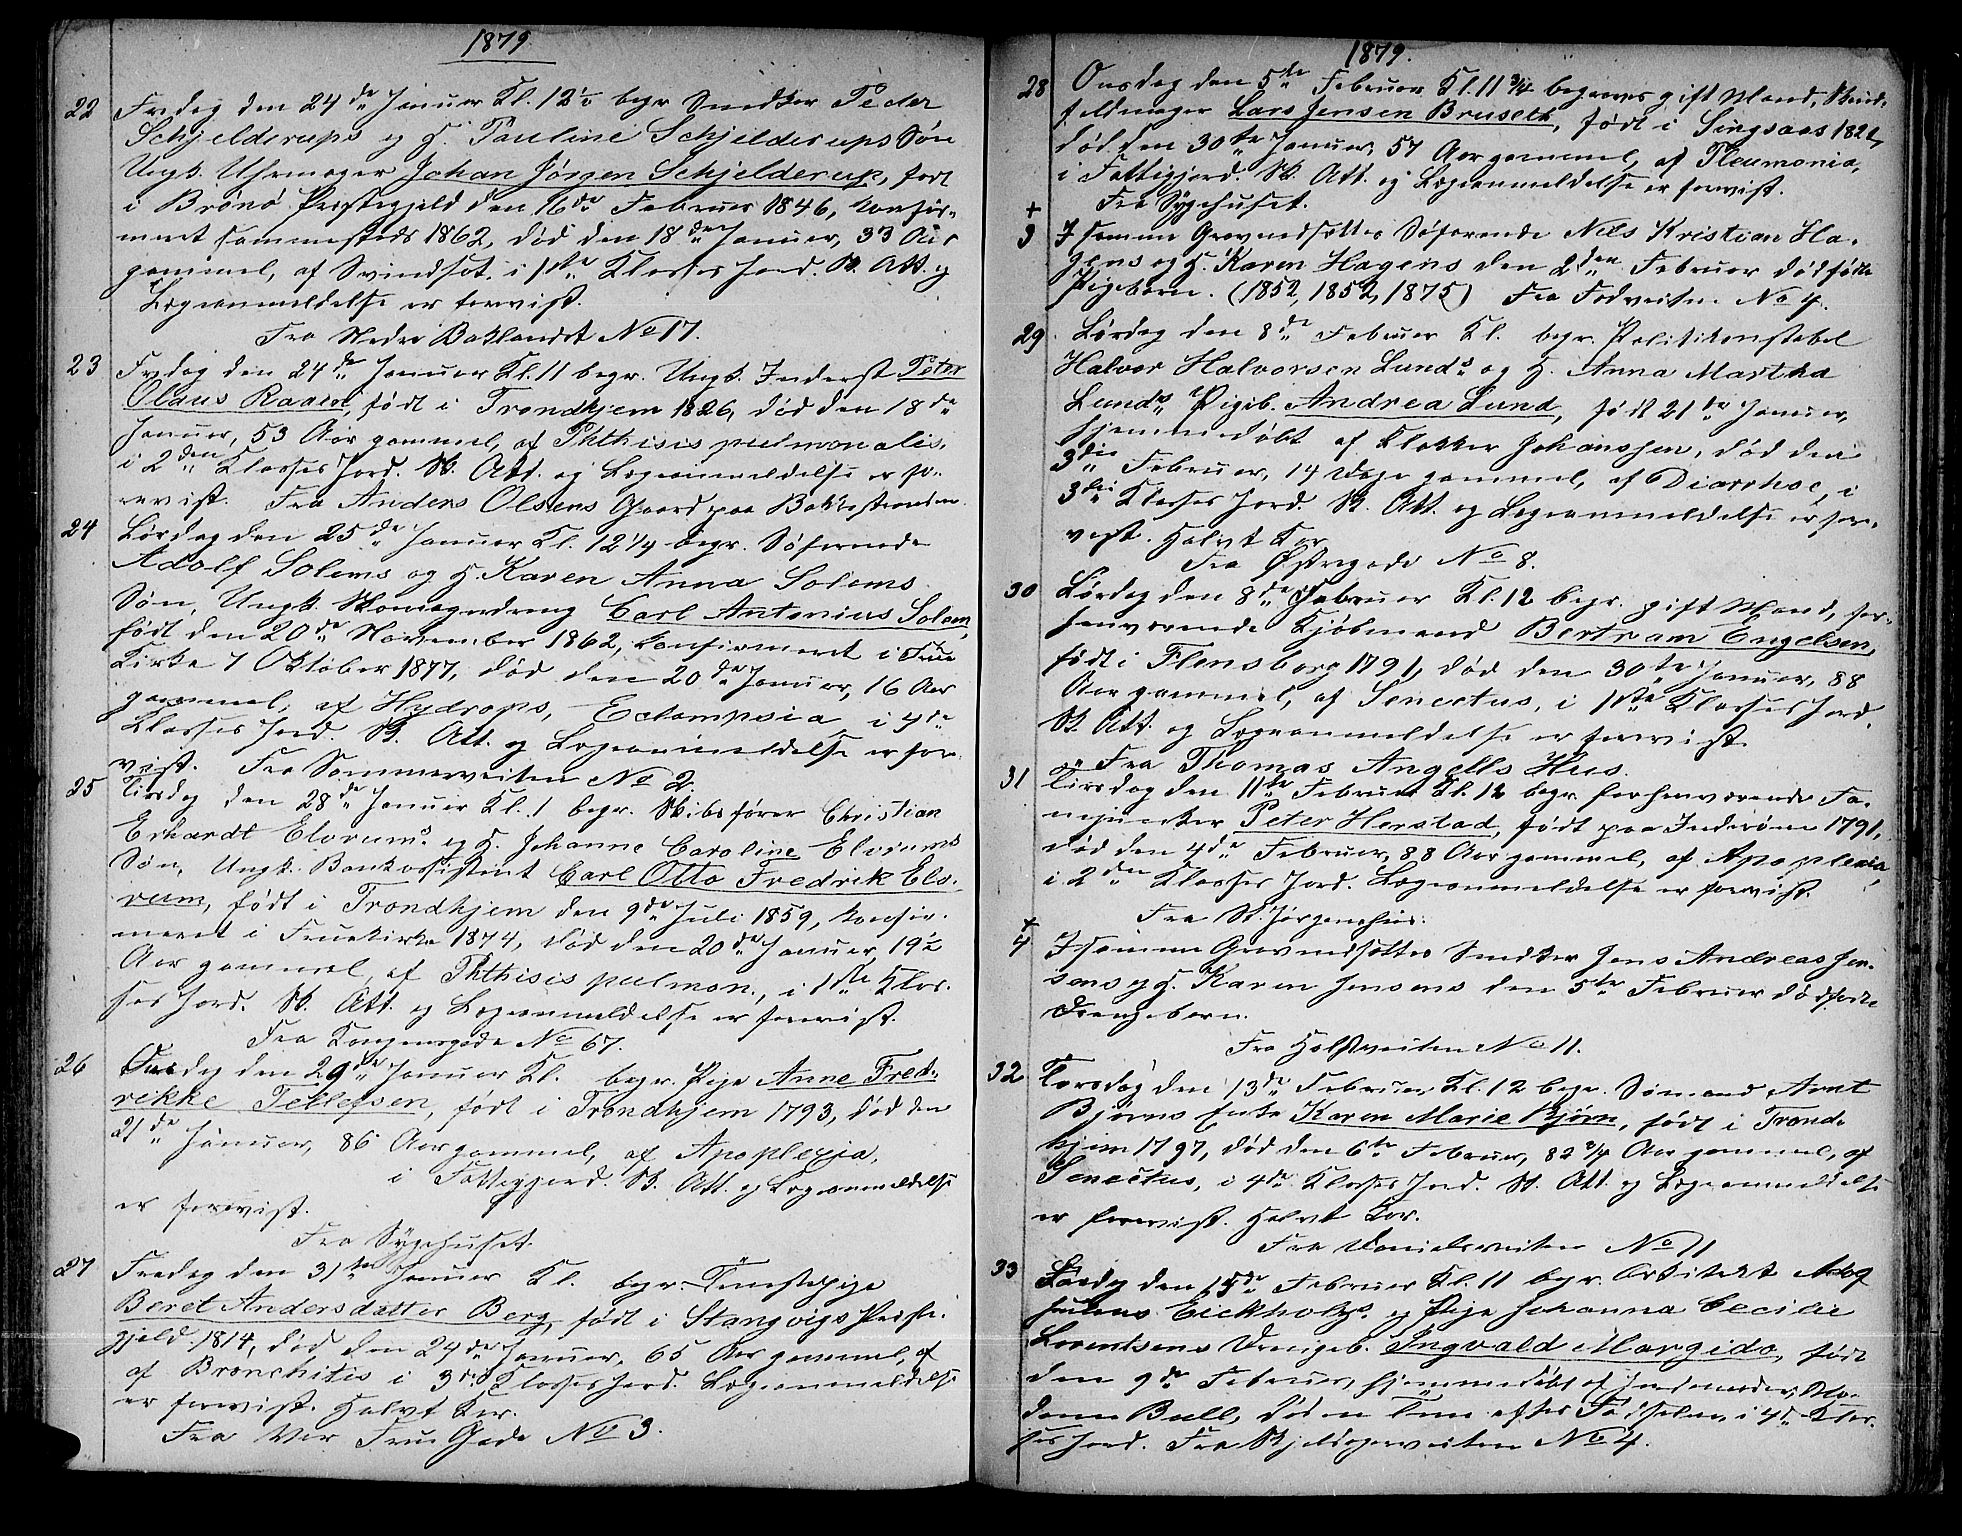 1879
22 Fredag den 24de Januar Kl. 12½ begr. Snedker Peder
Schjelderups og H. Pauline Schjelderups Søn
Ungk. Uhrmager Johan Jørgen Schjelderup, født
i Brønø Præstegjeld den 16de Februar 1846, konfir-
meret sammesteds 1862, død den 18de Januar, 33 Aar
gammel, af Svindsot, i 1ste Klasses Jord. Sk. Att. og
Lægeanmeldelse er forevist.
Fra Nedre Baklandet No 17.
23 Fredag den 24de Januar Kl. 11 begr. Ungk. Inderst Peter
Olaus Raaen, født i Trondhjem 1826, død den 18de
Januar, 53 Aar gammel, af Phthisis pulmonalis,
i 2den Klasses Jord. Sk. Att. og Lægeanmeldelse er fo-
revist. Fra Anders Olsens Gaard paa Bakkestranden.
24 Lørdag den 25de Januar Kl. 12¼ begr. Søfarende
Adolf Solems og H. Karen Anna Solems
Søn, Ungk. Skomagerdreng Carl Antonius Solem,
født den 20de November 1862, konfirmeret i Frue
Kirke 7 Oktober 1877, død den 20de Januar, 16 Aar
gammel, af Hydrops, Eclampsia, i 4de
Klasses Jord. Sk. Att. og Lægeanmeldelse er fore-
vist. Fra Sommerveiten No 2.
25 Tirsdag den 28de Januar Kl. 1 begr. Skibsfører Christian
Erhardt Elvrums og H. Johanne Caroline Elvrums
Søn, Ungk. Bankassistent Carl Otto Fredrik Elv-
rum, født i Trondhjem den 9de Juli 1859, konfir-
meret i Fruekirke 1874, død den 20de Januar, 19½
Aar gammel, af Phthisis pulmon., i 1ste Klas-
ses Jord. Sk. Att. og Lægeanmeldelse er forevist.
Fra Kongensgade No 67.
26 Onsdag den 29de Januar Kl. begr. Pige Anne Fred-
rikke Tellefsen, født i Trondhjem 1793, død den
21de Januar, 86 Aar gammel, af Apoplexia,
i Fattigjord. Sk. Att. og Lægeanmeldelse
er forevist.
Fra Sygehuset.
27 Fredag den 31te Januar Kl. begr. Tjenestepige
Beret Andersdatter Berg, født i Stangvigs Præste-
gjeld 1814, død den 24de Januar, 65 Aar gammel, af
af Bronchitis i 3die Klasses Jord. Lægeanmeldelse
er forevist. Halvt Kor.
Fra Vor Frue Gade No 3.
1879.
28 Onsdag den 5te Februar Kl. 11¾ begraves gift Mand, Skind-
feldmager Lars Jensen Bruseth, født i Singsaas 1821,
død den 30te Januar, 57 Aar gammel, af Pleumonia,
i Fattigjord. Sk. Att. og Lægeanmeldelse er forevist.
Fra Sygehuset.
+
3 I samme Grav nedsattes Søfarende Nils Kristian Ha-
gens og H. Karen Hagens den 2den Februar dødfødte
Pigebarn. (1852, 1852, 1875) Fra Fodveiten No 4.
29 Lørdag den 8de Februar Kl. begr. Politikonstabel
Halvor Halvorsen Lunds og H. Anna Martha
Lunds Pigeb. Andrea Lund, født 21de Januar,
hjemmedøbt af Klokker Johanssen, død den
3die Februar, 14 Dage gammel, af Diarrhoe, i
3die Klasses Jord. Sk. Att. og Lægeanmeldelse er fore-
vist. Halvt Kor.
Fra Østregade No 8.
30 Lørdag den 8de Februar Kl. 12 begr. gift Mand, for-
henværende Kjøbmand Bertram Engelsen,
født i Flensborg 1791, død den 30te Januar, 88
Aar gammel, af Senectus, i 1ste Klasses Jord.
Sk. Att. og Lægeanmeldelse er forevist.
Fra Thomas Angells Hus.
31 Tirsdag den 11te Februar Kl. 12 begr. forhenværende Fa-
nejunker Peter Herstad, født paa Inderøen 1791,
død den 4de Februar, 88 Aar gammel, af Apoplexia,
i 2den Klasses Jord. Lægeanmeldelse er forevist.
Fra St. Jørgenshus.
+
4 I samme Grav nedsattes Snedker Jens Andreas Jen-
sens og H. Karen Jensens den 5te Februar dødfødte
Drengebarn.
Fra Holstveiten No 11.
32 Torsdag den 13de Februar Kl. 12 begr. Sømand Arnt
Bjørns Enke Karen Marie Bjørn, født i Trond-
hjem 1797, død den 6te Februar, 82¾ Aar gammel, af
Senectus, i 4de Klasses Jord. Sk. Att. og Lægeanmeldelse
er forevist. Halvt Kor.
Fra Danielsveiten No 11
33 Lørdag den 15de Februar Kl. 11 begr. Arkitekt
Eickholz og Pige Johanna Cecilie
Lorentsens Drengeb. Ingvald Margido, født
den 9de Februar, hjemmedøbt af Jordemoder Ma-
dame Bull, død en Time efter Fødselen, i 4de Klas-
ses Jord. Fra Skjeldagerveiten No 4.